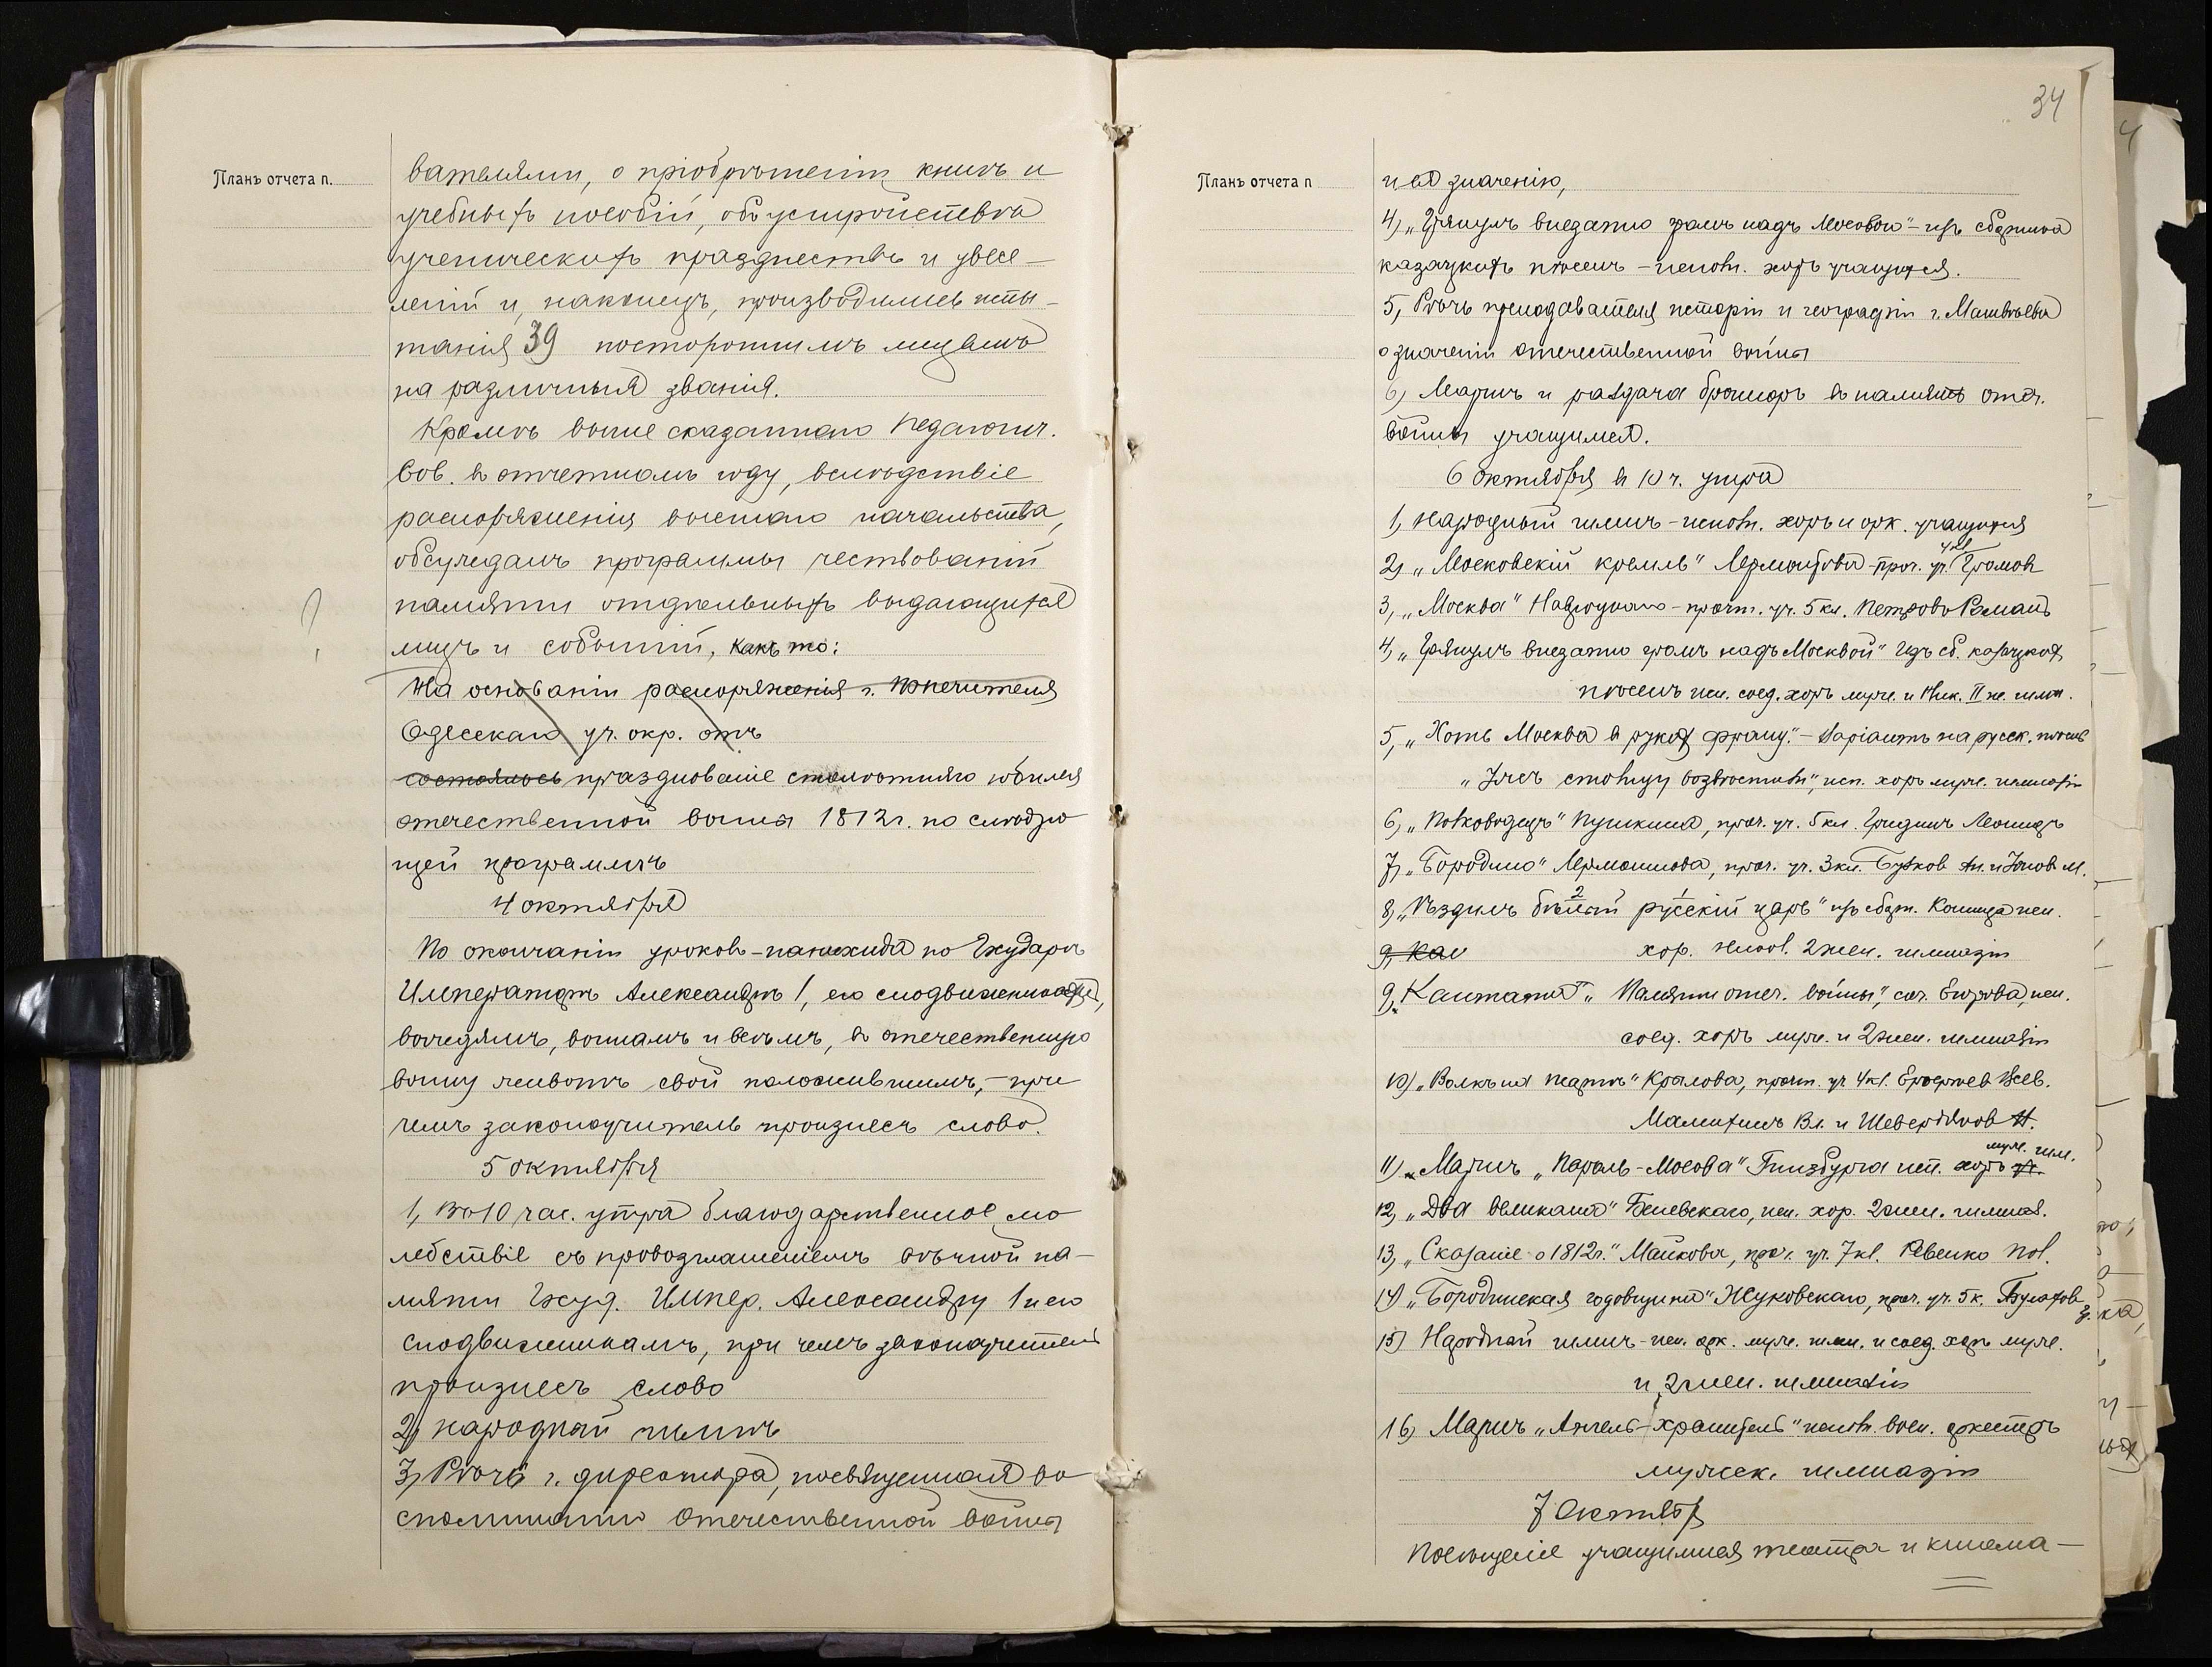 Планъ отчета п.
вателями, о пріобрѣтеніи книгъ и
учебныхъ пособій, объ устройствѣ
ученическихъ празднествъ и увесе-
леній и, наконецъ, производились испы-
танія 39 постороннимъ лицамъ
на различныя званія.
Кромѣ выше сказаннаго Педагогич.
Сов. въ отчетномъ году, вслѣдствіе
распоряженія высшаго начальства,
обсуждалъ программы чествованій
памяти отдѣльныхъ выдающихся
лицъ и событій, какъ то:
На основаніи распоряженія г. Попечителя
Одесскаго уч. окр. отъ
состоялось празднованіе столѣтняго юбилея
отечественной войны 1812 г. по слѣдую
щей программѣ
4 октября
По окончаніи уроковъ - панихида по Государѣ
Императорѣ Александрѣ I, его сподвижникахъ,
вождямъ, воинамъ и всѣмъ, въ отечественную
войну животъ свой положившимъ, - при
чемъ законоучитель произнесъ слово.
5 октября
1, Въ 10 час. утра благодарственное мо
лебствіе съ провозглашеніемъ вѣчной па-
мяти Госуд. Импер. Александру I и его
сподвижникамъ, при чемъ законоучитель
произнесъ слово
2, народный гимнъ
3, Рѣчь г. директора, посвященная во
споминанію Отечественной войны
34
Планъ отчета п
и ея значенію,
4, „Грянулъ внезапно громъ надъ Москвою" - изъ сборника
казацкихъ пѣсенъ - исполн. хоръ учащихся.
5, Рѣчь преподавателя исторіи и географіи г. Матвѣева
о значеніи отечественной войны
6, Маршъ и раздача брошюръ въ память отеч.
войны учащимся.
6 октября въ 10 ч. утра
1, Народный гимнъ - исполн. хоръ и орк. учащихся
2, „Московскій кремль" Лермонтова - проч. уч. Громов
3, „Москва" - прочт. уч. 5 кл. Петровъ Романъ
4, „Грянулъ внезапно громъ надъ Москвой" Изъ сб. казацкихъ
пѣсенъ исп. соед. хоръ муж. и Ник. II ж. гимн.
5, „Хоть Москва въ рукахъ франц." - варіантъ на русск. пѣснь
исп. хоръ муж. гимназіи
6, „Полководецъ" Пушкина, проч. уч. 5 кл. Гридинъ Леонидъ
7, „Бородино" Лермонтова, проч. уч. 3 кл.
8, „Ѣздилъ бѣлый русскій царь" изъ сборн. исп.
9, Кан
хор. 2 жен. гимназіи
9, Кантата „Памяти отеч. войны", соч. Егорова, исп.
соед. хоръ муж. и 2 жен. гимназіи
10) „Волкъ на псарнѣ" Крылова, прочт. уч 4 кл.
11) Маршъ „Пароль - Москва" Гинзбурга исп. хоръ муж. гим.
12, „Два великана" исп. хор. 2 жен. гимназ.
13, „Сказаніе о 1812 г." Майкова, проч. уч. 7 кл. Ревенко
14) „Бородинская годовщина" Жуковскаго, проч. уч. 5 к.
15) Народный гимнъ - исп. орк. муж. гимн. и соед. хоръ муж.
и 2 жен. гимназіи
16) Маршъ „Ангелъ-хранитель" исполн. воен. оркестръ
мужск. гимназіи
7 Октябр
Посѣщеніе учащимися театра и кинема-